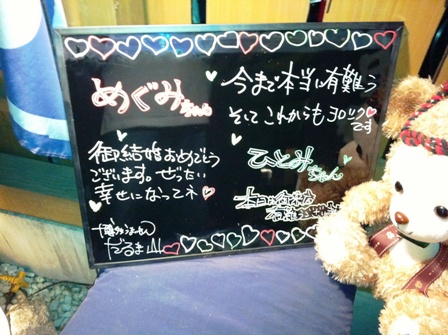 めぐみちゃん
御結婚おめでとう
ございます。ぜったい
幸せになってネ
だるま
今まで本当に有難う
そして これからも ヨロシク
です
ひとみちゃん
本日は御来店